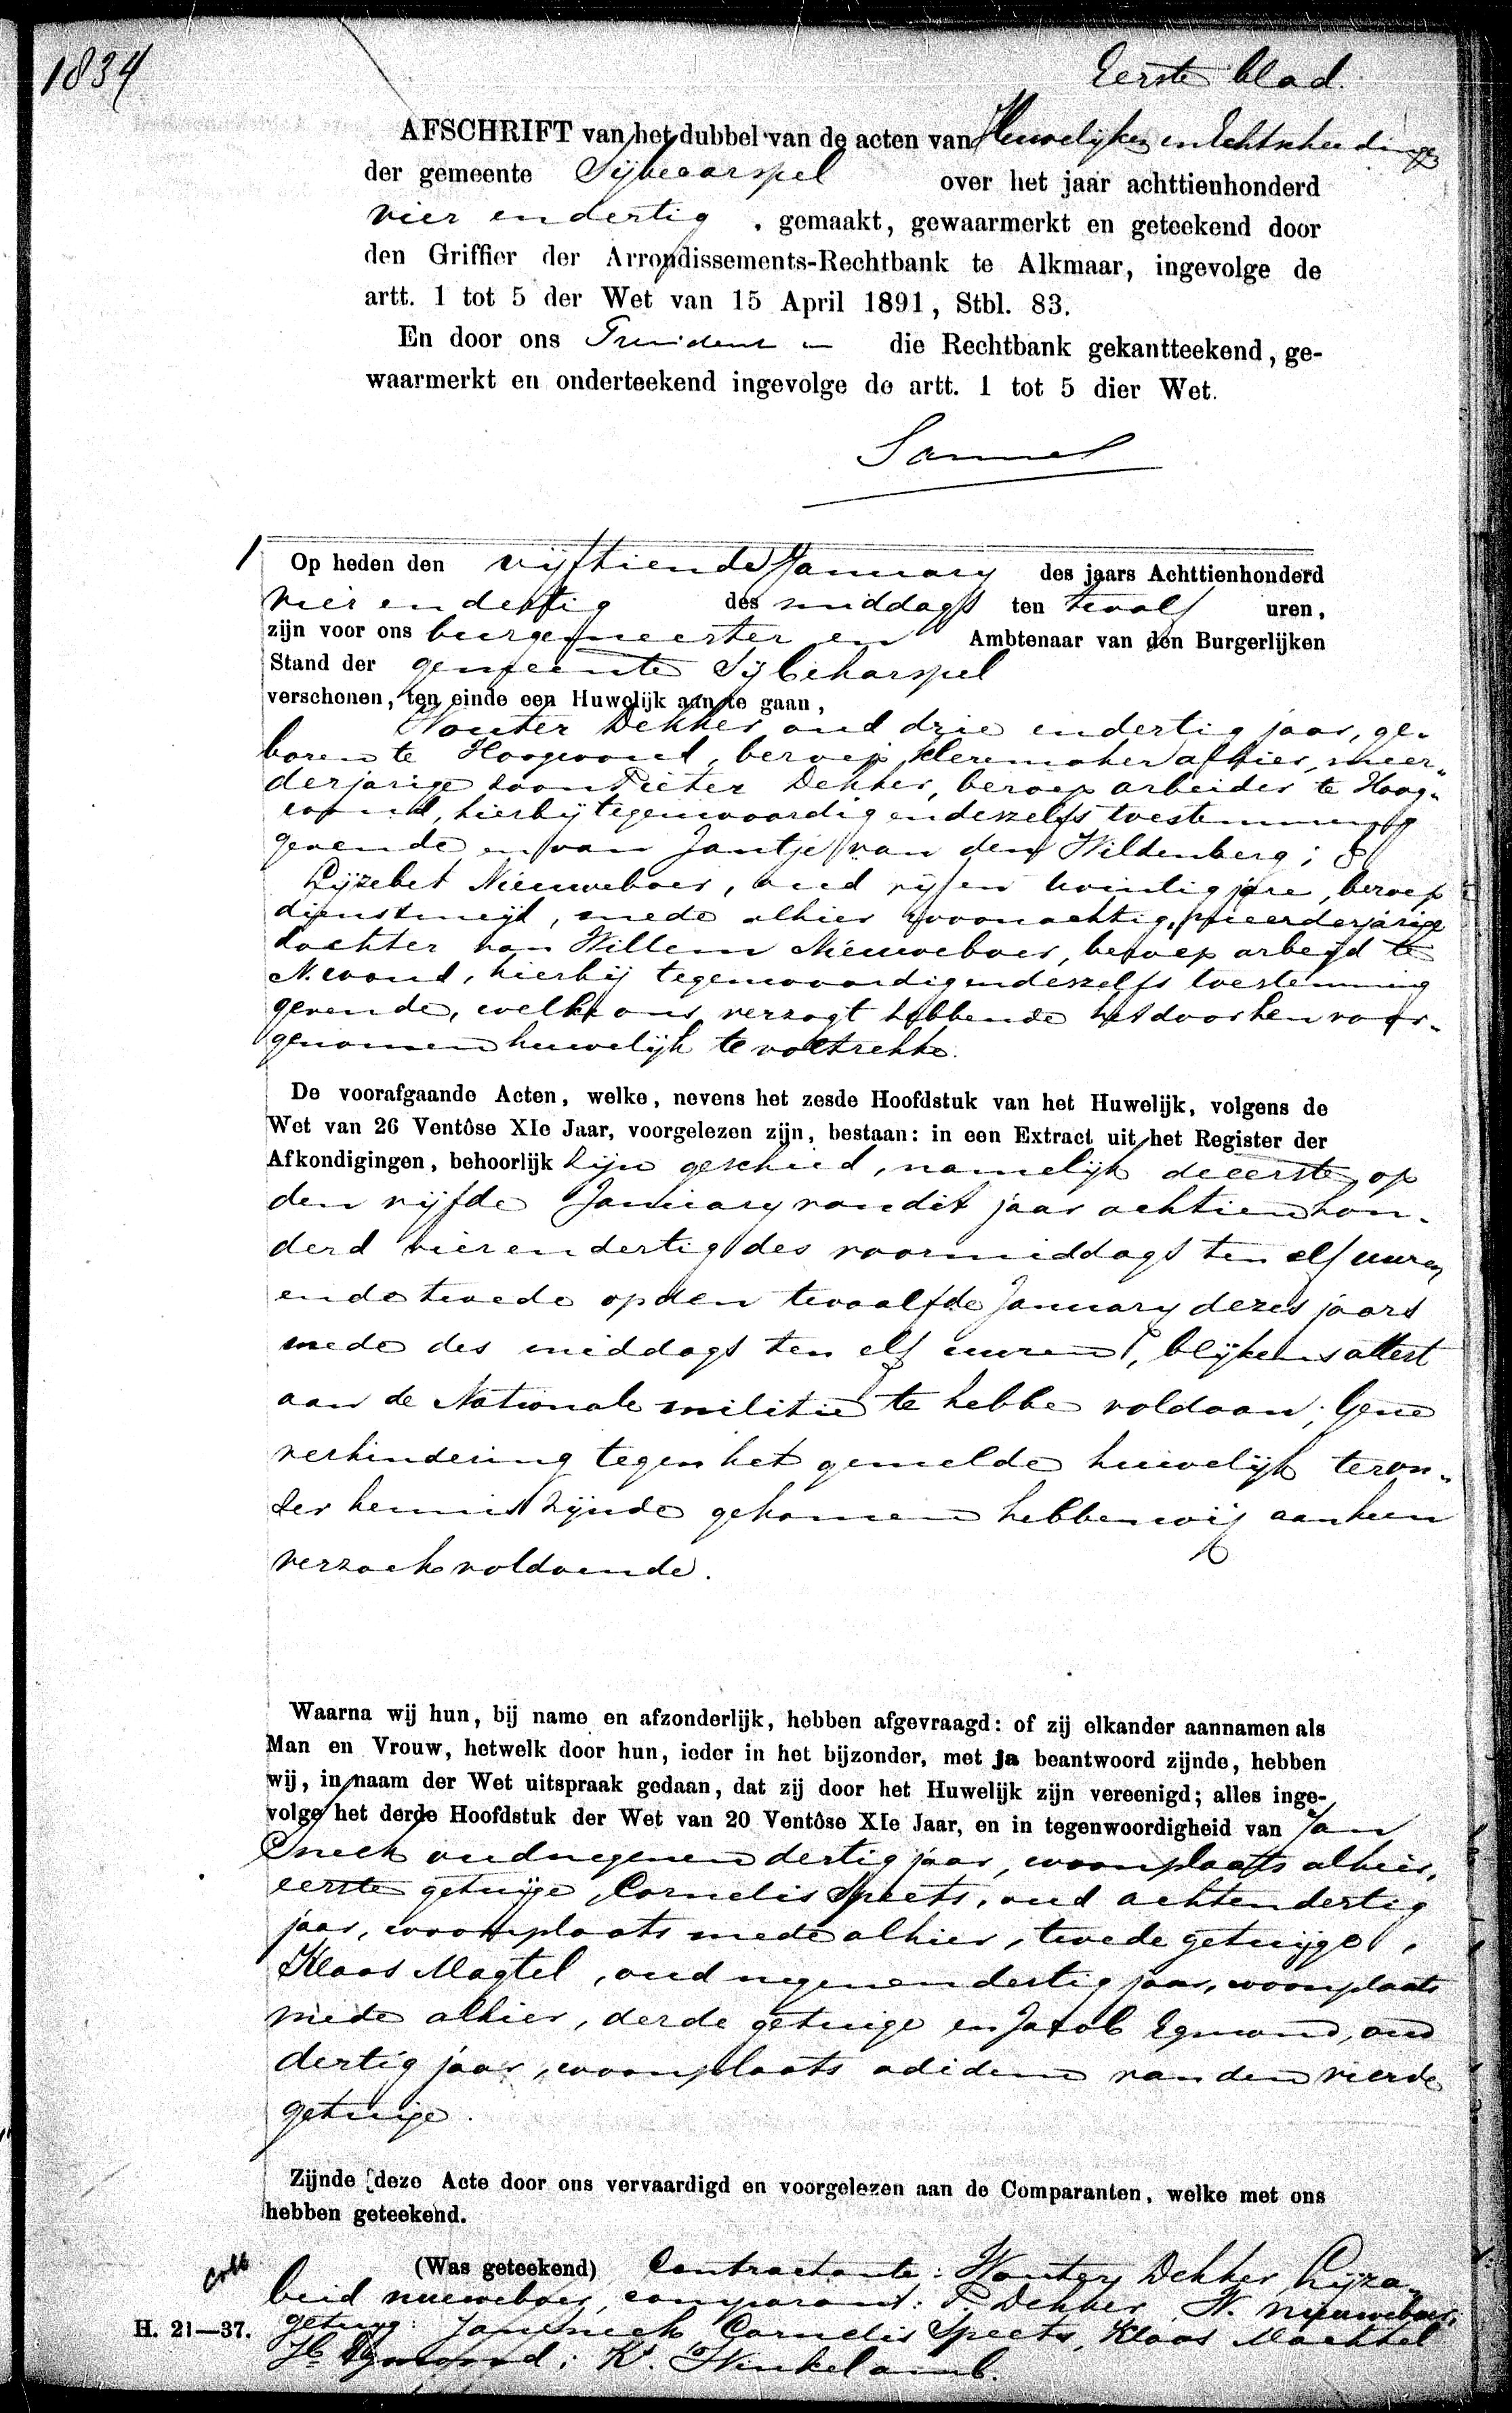 1834
Eerste blad.
AFSCHRIFT van het dubbel van de acten van Huwelijken en Echtscheidingen
der gemeente Sijbecarspel over het jaar achttienhonderd
vier en dertig, gemaakt, gewaarmerkt en geteekend door
den Griffier der Arrondissements-Rechtbank te Alkmaar, ingevolge de
artt. 1 tot 5 der Wet van 15 April 1891, Stbl. 83.
En door ons President die Rechtbank gekantteekend, ge-
waarmerkt en onderteekend ingevolge de artt. 1 tot 5 dier Wet.
1 Op heden den vijftiende January des jaars Achttienhonderd
vier en dertig des middags ten twalf uren,
zijn voor ons burgemeester en Ambtenaar van den Burgerlijken
Stand der gemeente Sijbekarspel
verschenen, ten einde een Huwelijk aan te gaan,
Wouter Dekker oud drie endertig jaar, ge-
boren te Hoogwoud, beroep kleremaker alhier, meer-
derjarige zoon Pieter Dekker, beroep arbeider te Hoog-
woud, hierbij tegenwoordig endeszelfs toestemming
gevende en van Jantje van den Wildenberg; &
Lijzebet Nieuweboer, oud vijf en twintig jare, beroep
dienstmeijd, mede alhier woonachtig, meerderjarige
dochter van Willem Nieuweboer, beroep arbeijd te
N. woud, hierbij tegenwoordig endeszelfs toestemming
gevende, welke ons verzogt hebbende het door hen voor-
genomen huwelijk te voltrekke.
De voorafgaande Acten, welke, nevens het zesde Hoofdstuk van het Huwelijk, volgens de
Wet van 26 Ventôse XIe Jaar, voorgelezen zijn, bestaan: in een Extract uit het Register der
Afkondigingen, behoorlijk zijn geschied, namelijk de eerste op
den vijfde January van dit jaar achtienhon-
derd vier en dertig des voormiddags ten elf uuren
en de twede op den twaalfde January dezes jaars
mede des middags ten elf uuren, blijkens attest
aan de Nationale militie te hebbe voldaan; Gene
verhindering tegen het gemelde huwelijk teron-
zer kennis zijnde gekomen hebben wij aan hun
verzoek voldoende.
Waarna wij hun, bij name en afzonderlijk, hebben afgevraagd: of zij elkander aannamen als
Man en Vrouw, hetwelk door hun, ieder in het bijzonder, met ja beantwoord zijnde, hebben
wij, in naam der Wet uitspraak gedaan, dat zij door het Huwelijk zijn vereenigd; alles inge-
volge het derde Hoofdstuk der Wet van 20 Ventôse XIe Jaar, en in tegenwoordigheid van Jan
Sneek oud negenendertig jaar, woonplaats alhier,
eerste getuige, Cornelis Speets, oud achtendertig
jaar, woonplaats mede alhier, twede getuijge,
Klaas Magtel, oud negenendertig jaar, woonplaats
mede alhier, derde getuige en Jacob Egmond, oud
dertig jaar, woonplaats adidem van den vierde
getuige.
Zijnde deze Acte door ons vervaardigd en voorgelezen aan de Comparanten, welke met ons
hebben geteekend.
(Was geteekend) Contractante: Wouter Dekker, Lijza-
beid nieuweboer, comparant: P. Dekker, W. nieuweboer;
H. 21—37. getuig: Jan Sneek Cornelis Speets, Klaas Machtel
Jb Egmond; K. Winkel amb.